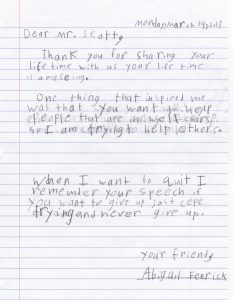 monday, march 19, 2018
Dear Mr. Scott,
Thank you for sharing your
life time with us your life time
is amaseing.
One thing that inspired me
was that you want to help
people that are in
so I am trying to help others.
When I want to quit I
remember your speech if
you want to give up just cepe
trying and never give up.
your friend,
Abigail Fearick